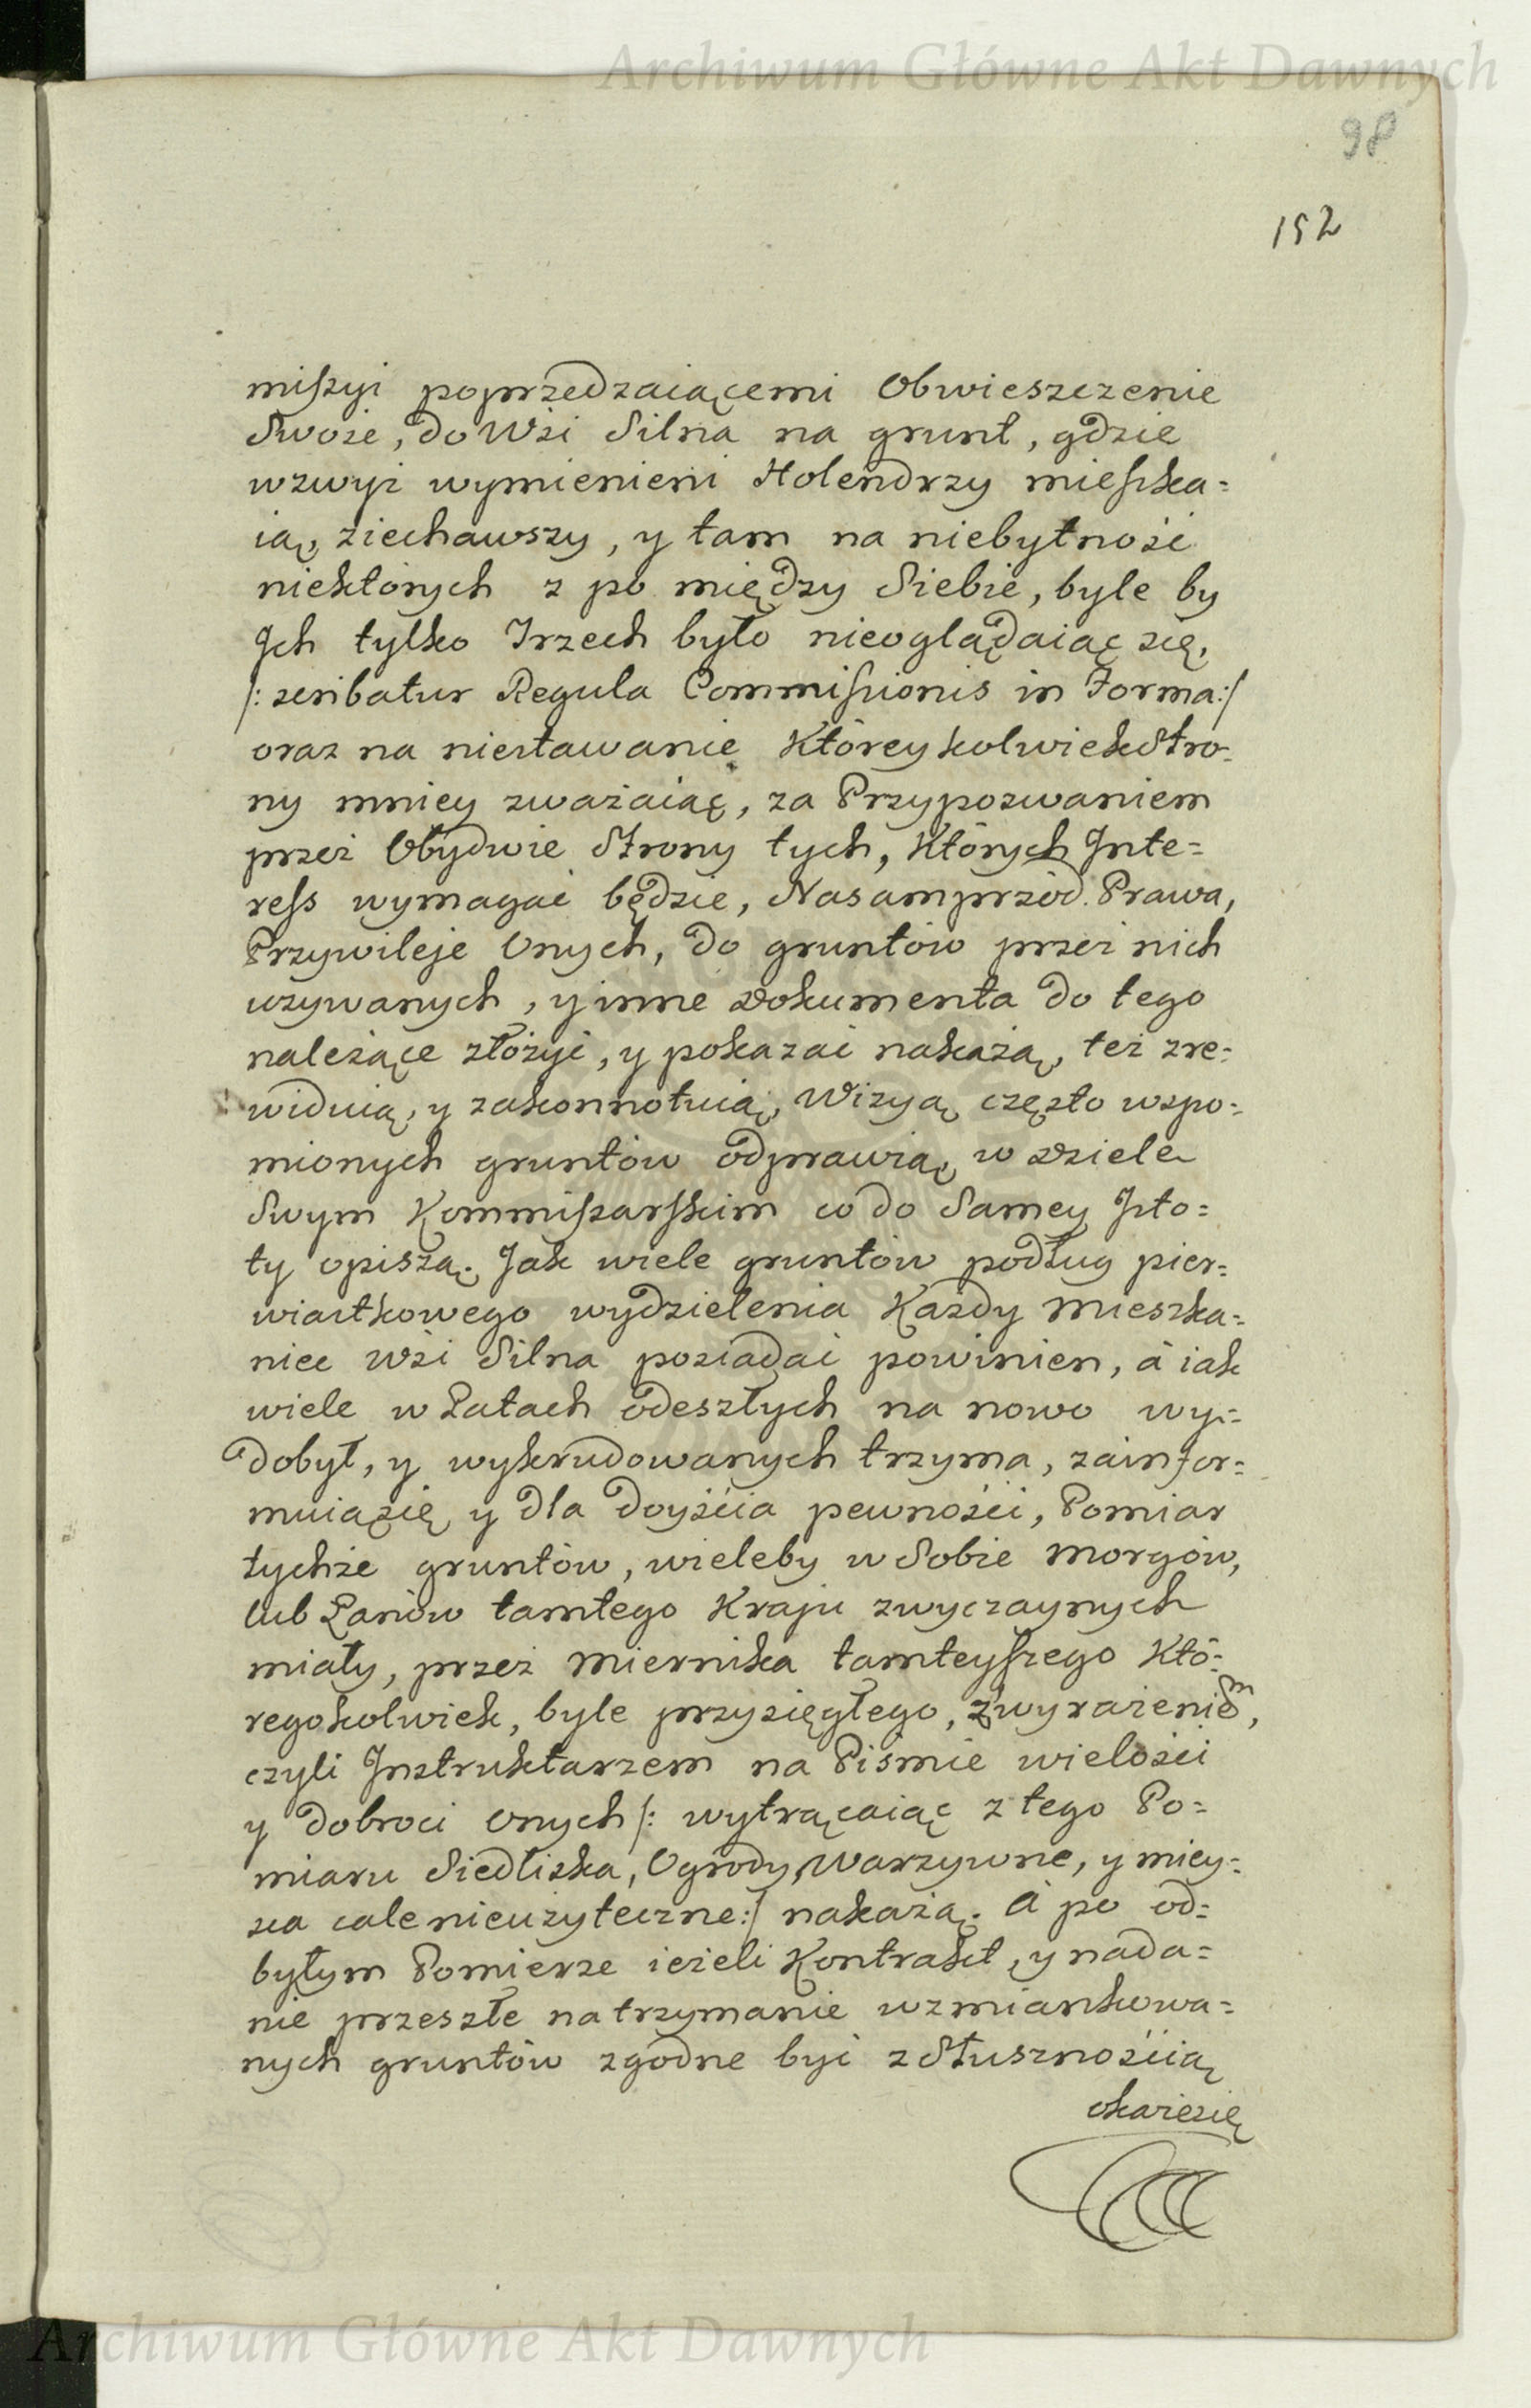 Archiwum Główne Akt Dawnych
98
152
miſsyi poprzedzaiącemi Obwieszczenie
Swoie, do Wśi Silna na grunt, gdzie
wzwyż wymienieni Holendrzy mieſzka=
ią, ziechawszy, y tam na niebytność
niektórych z po między Siebie, byle by
Jch tylko Trzech było nieoglądaiąc się,
/: scribatur Regula Commiſsionis in Forma :/
oraz na niestawanie Którey kolwiek Stro=
ny mniey zważaiąc, za Przypozwaniem
przez Obydwie Strony tych, Których Inte=
reſs wymagać będzie, Nasamprzód Prawa,
Przywileje Onych, do gruntów przez nich
używanych, y inne Dokumenta do tego
należące złożyć, y pokazać nakażą, też zre=
widuią, y zakonnotuią, Wizyą często wspo=
mionych gruntów odprawią, w Dziele
Swym Kommiſsarſkim co do Samey Isto=
ty opiszą. Jak wiele gruntów podług pier=
wiastkowego wydzielenia Każdy Mieszka=
niec Wśi Silna posiadać powinien, á iak
wiele w Latach odeszłych na nowo wy=
dobył, y wykrudowanych trzyma, zainfor=
muią się, y dla doyścia pewności, Pomiar
tychże gruntów, wieleby w Sobie Morgów,
lub Łanów tamtego Kraju zwyczaynych
miały, przez Miernika tamteyſzego Któ=
regokolwiek, byle przysięgłego, z wyrażeniem,
czyli Instruktarzem na Piśmie wielości
y dobroci Onych /: wytrącaiąc z tego Po=
miaru Siedliska, Ogrody Warzywne, y miey=
sca cale nieużyteczne :/ nakażą. A po od=
bytym Pomierze ieżeli Kontrakt, y nada=
nie przeszłe na trzymanie wzmiankowa=
nych gruntów zgodne być z Słusznością
okaże się
Archiwum Główne Akt Dawnych